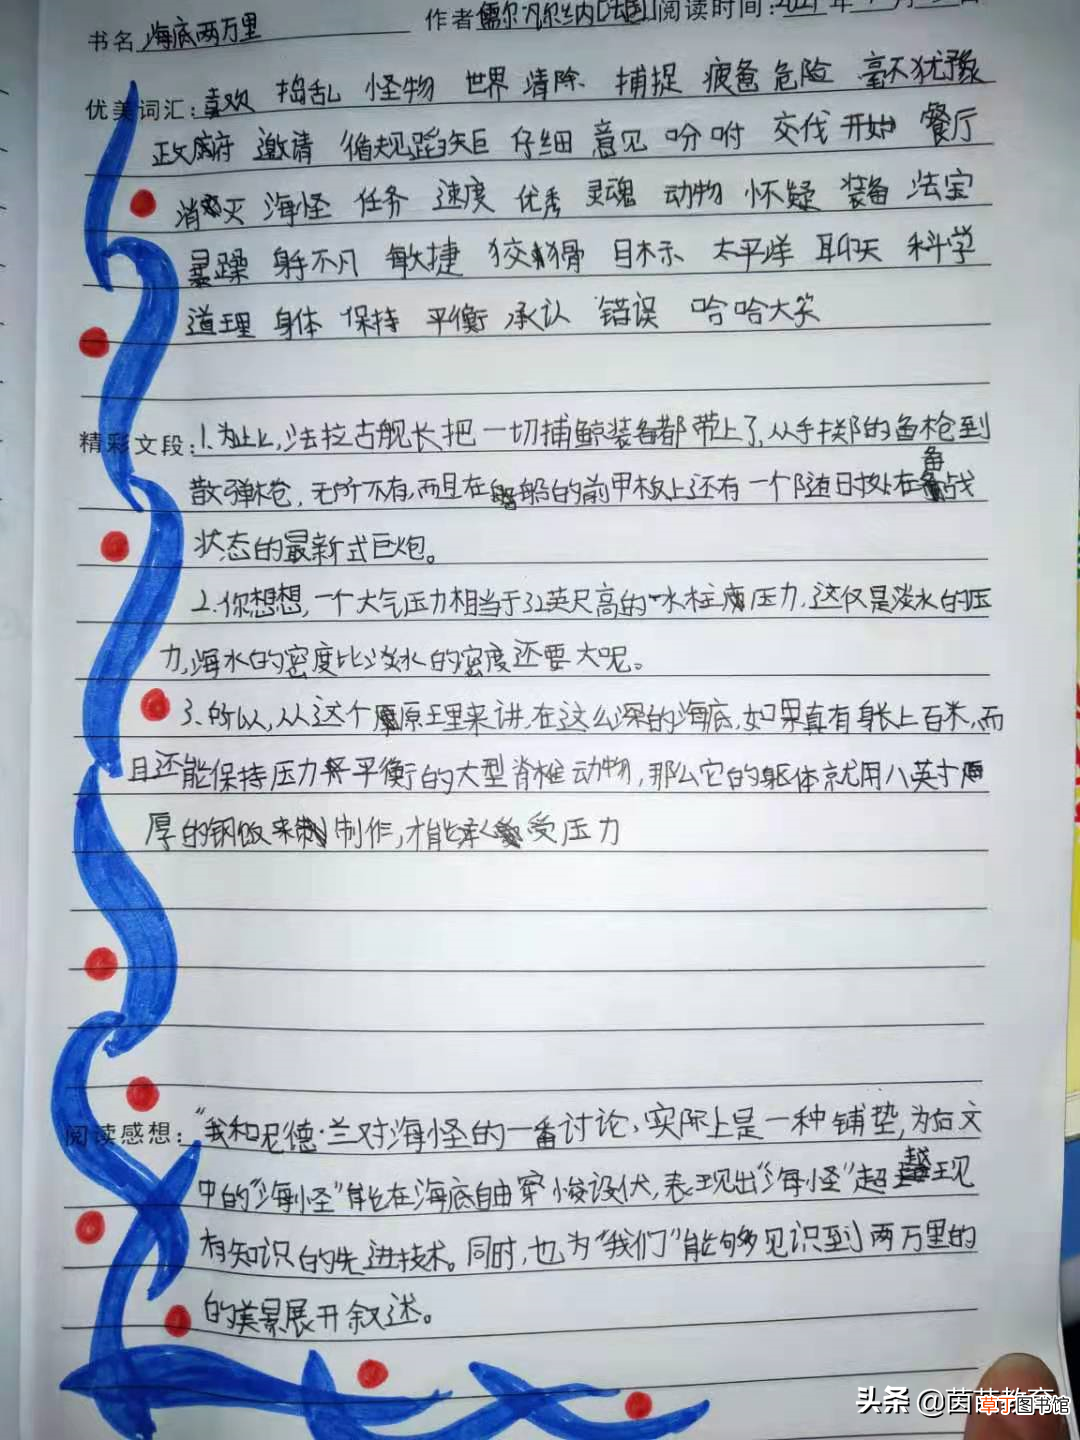 书名 海底两万里 作者 儒尔·凡尔纳[法国] 阅读时间:2021年
优美词汇: 喜欢 捣乱 怪物 世界 清除 捕捉 疲惫 危险 毫不犹豫
政府 邀请 循规蹈矩 仔细 意见 吩咐 交代 开始 餐厅
消灭 海怪 任务 速度 优秀 灵魂 动物 怀疑 装备 法宝
暴躁 身手不凡 敏捷 狡猾 目标 太平洋 聊天 科学
道理 身体 保持 平衡 承认 错误 哈哈大笑
精彩文段: 1.为此,法拉古舰长把一切捕鲸装备都带上了,从手掷的鱼枪到
散弹枪,无所不有,而且在船的前甲板上还有一个随时处在备战
状态的最新式巨炮。
2.你想想,一个大气压力相当于32英尺高的水柱压力,这仅是淡水的压
力,海水的密度比淡水的密度还要大呢。
3.所以,从这个原理来讲,在这么深的海底,如果真有身长上百米,而
且还能保持压力平衡的大型脊椎动物,那么它的躯体就用八英寸
厚的钢板来制作,才能承受压力
阅读感想: “我和尼德·兰对海怪的一番讨论,实际上是一种铺垫,为后文
中的“海怪”能在海底自由穿梭设伏,表现出“海怪”超现
有知识的先进技术。同时,也为“我们”能够见识到两万里的
的美景展开叙述。
头条 @茵茵教育
草丁图书馆